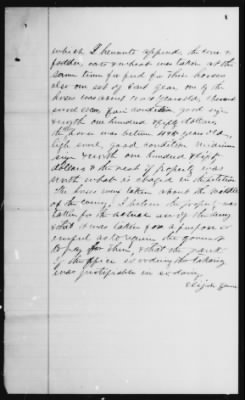 which I hereunto append, the corn &
fodder, oats & wheat was taken at the
same time for feed for their horses
also one set of Cart gear one of the
horses was about 10 or 11 years old,
sized even fair condition good size
& worth one hundred & fifty dollars
the horse was between 4 & 5 years old,
good condition medium
size & worth one hundred & fifty
dollars & the rest of property was
worth what is charged in petition
The horses were taken about the middle
of the evening. I believe the property was
taken for the actual use of the army
& that it was taken for a purpose so
useful as to require the governmt
to pay for them, & that the rank
of the officer so ordering the taking
was justifiable in so doing
Elijah